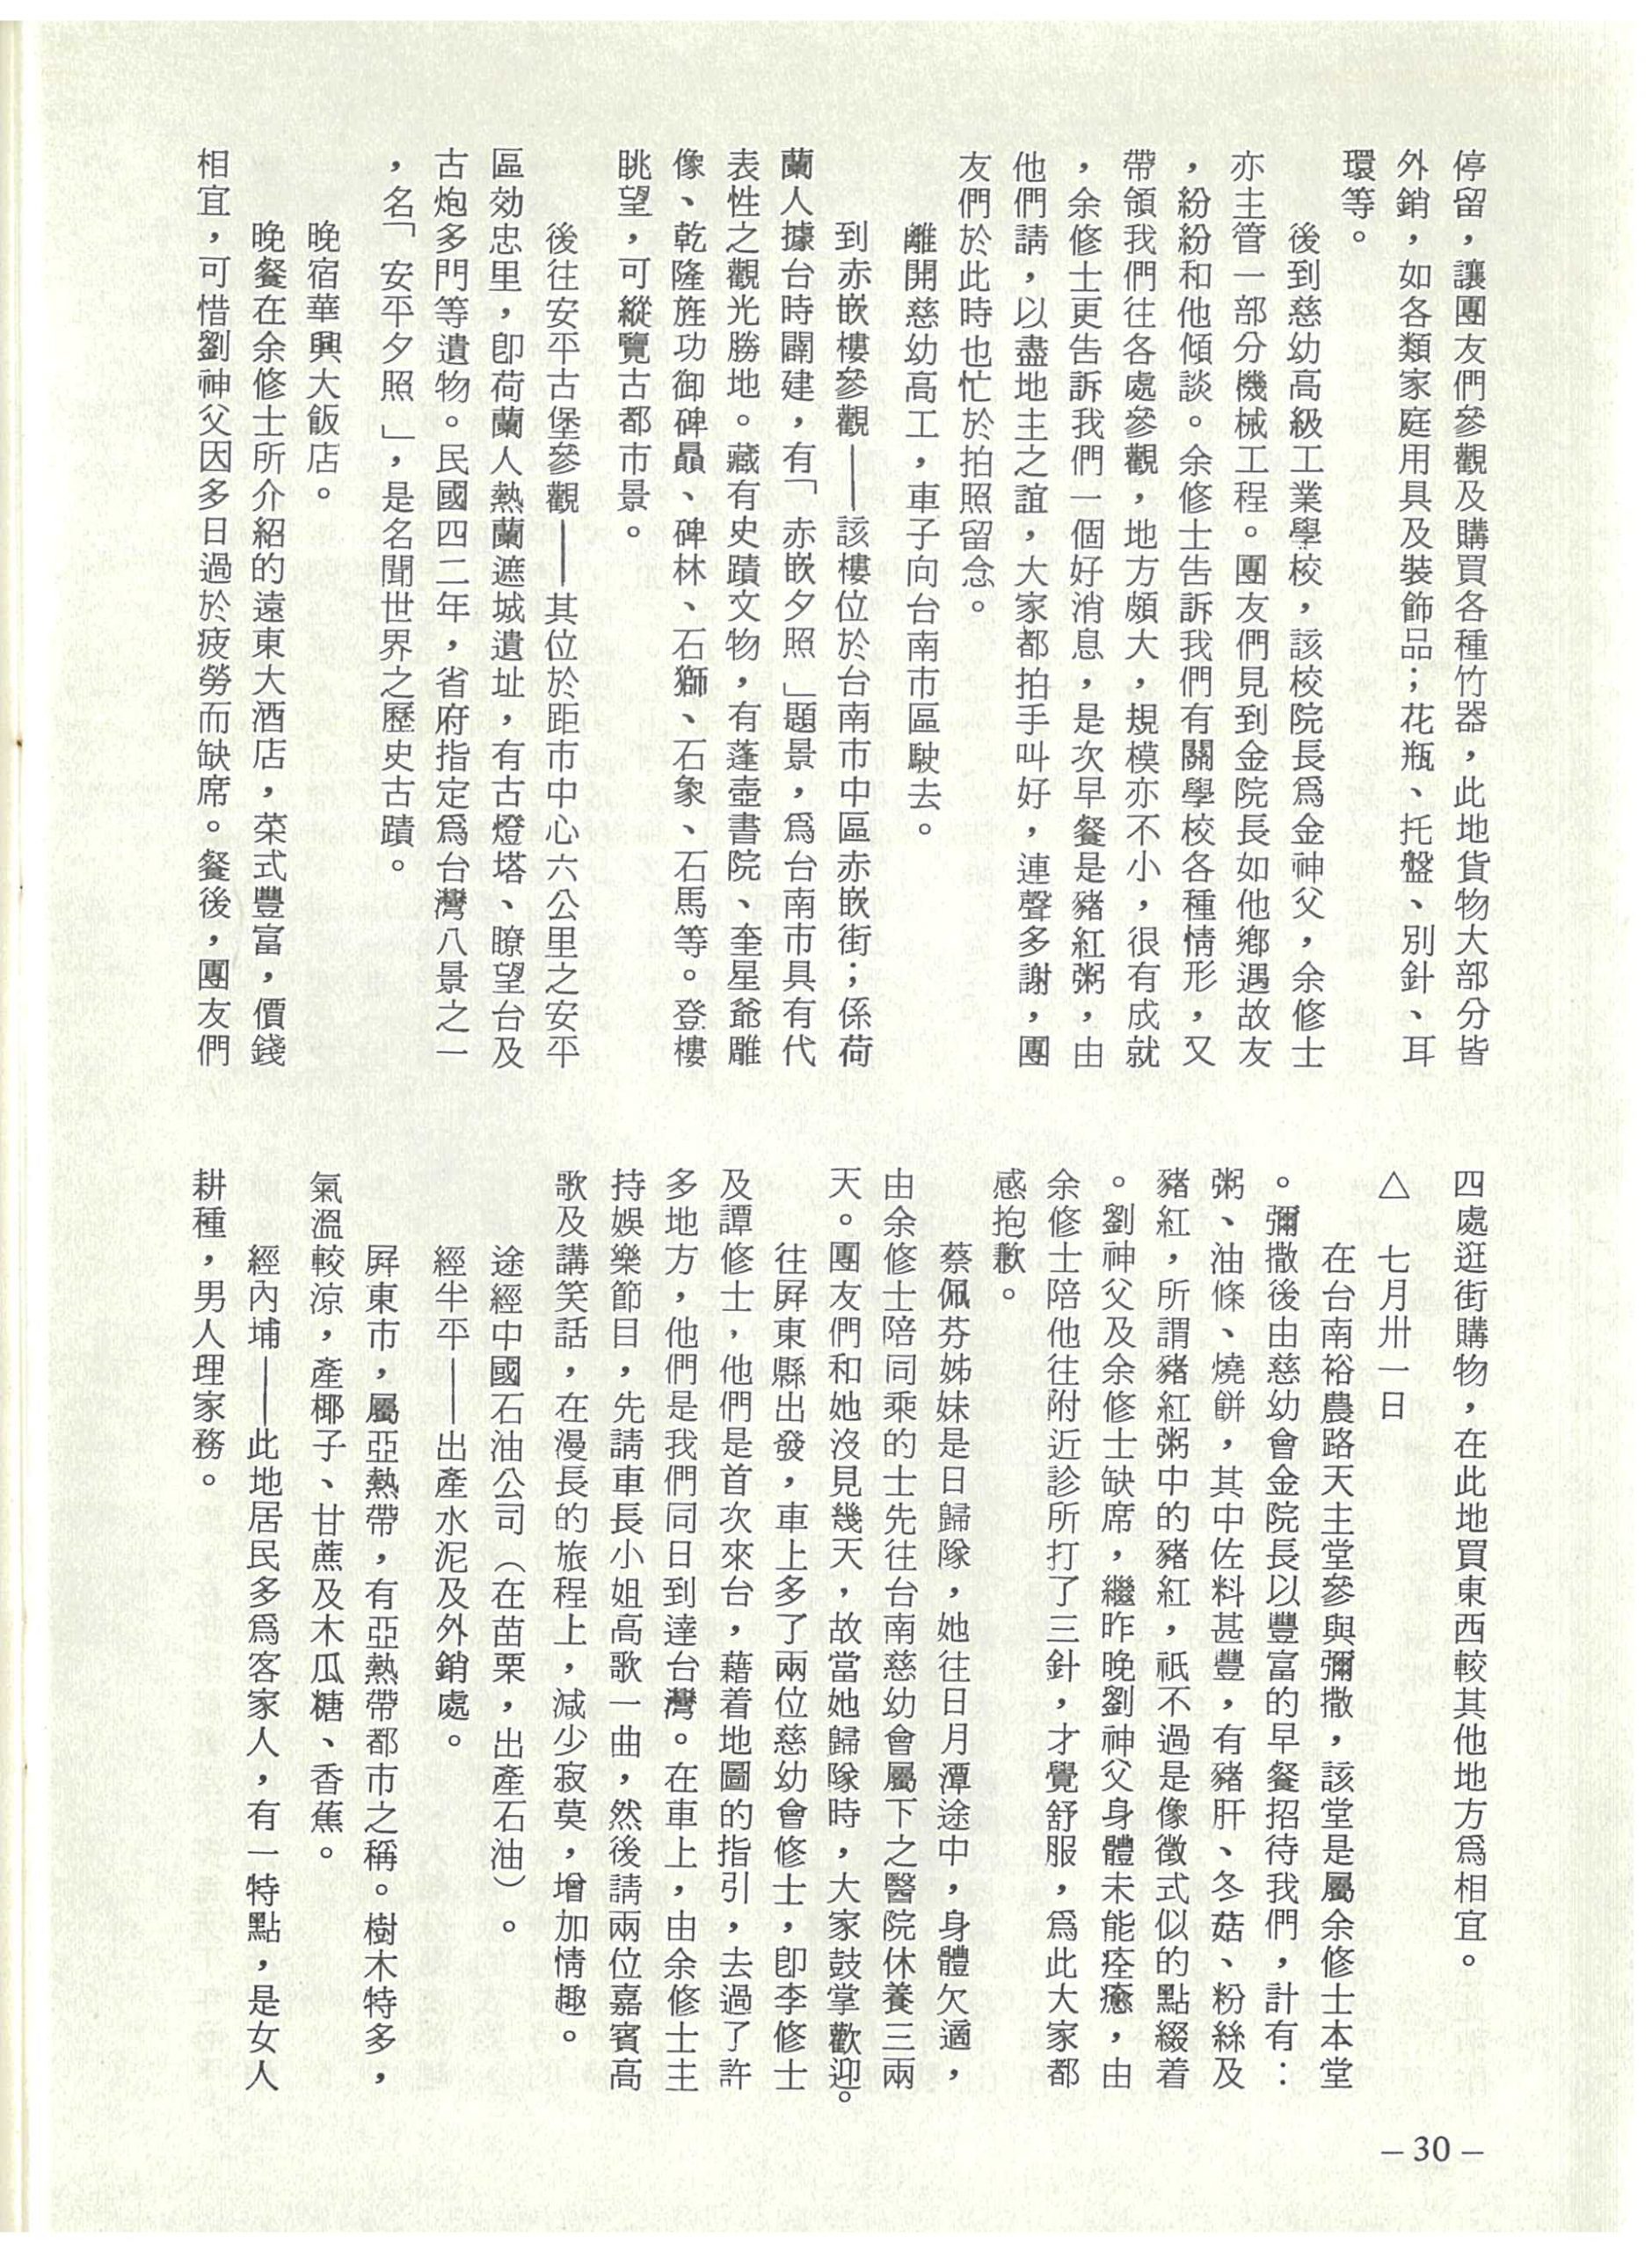 停留，讓團友們參觀及購買各種竹器，此地貨物大部分皆
外銷，如各類家庭用具及裝飾品；花瓶、托盤、別針、耳
環等。
後到慈幼高級工業學校，該校院長爲金神父，余修士
亦主管一部分機械工程。團友們見到金院長如他鄉遇故友
，紛紛和他傾談。余修士告訴我們有關學校各種情形，又
帶領我們往各處參觀，地方頗大，規模亦不小，很有成就
，余修士更告訴我們一個好消息，是次早餐是豬紅粥，由
他們請，以盡地主之誼，大家都拍手叫好，連聲多謝，團
友們於此時也忙於拍照留念。
離開慈幼高工，車子向台南市區駛去。
到赤嵌樓參觀——該樓位於台南市中區赤嵌街；係荷
蘭人據台時闢建，有「赤嵌夕照」題景，爲台南市具有代
表性之觀光勝地。藏有史蹟文物，有蓬壺書院、奎星爺雕
像、乾隆旌功御碑贔、碑林、石獅、石象、石馬等。登樓
眺望，可縱覽古都市景。
後往安平古堡參觀——其位於距市中心六公里之安平
區効忠里，卽荷蘭人熱蘭遮城遺址，有古燈塔、瞭望台及
古炮多門等遺物。民國四二年，省府指定爲台灣八景之一
，名「安平夕照」，是名聞世界之歷史古蹟。
晚宿華興大飯店。
晚餐在余修士所介紹的遠東大酒店，菜式豐富，價錢
相宜，可惜劉神父因多日過於疲勞而缺席。餐後，團友們
四處逛街購物，在此地買東西較其他地方爲相宜。
△　七月卅一日
在台南裕農路天主堂參與彌撒，該堂是屬余修士本堂
。彌撒後由慈幼會金院長以豐富的早餐招待我們，計有：
粥、油條、燒餅，其中佐料甚豐，有豬肝、冬菇、粉絲及
豬紅，所謂豬紅粥中的豬紅，祇不過是像徵式似的點綴着
。劉神父及余修士缺席，繼昨晚劉神父身體未能痊癒，由
余修士陪他往附近診所打了三針，才覺舒服，爲此大家都
感抱歉。
蔡佩芬姊妹是日歸隊，她往日月潭途中，身體欠適，
由余修士陪同乘的士先往台南慈幼會屬下之醫院休養三兩
天。團友們和她沒見幾天，故當她歸隊時，大家鼓掌歡迎。
往屛東縣出發，車上多了兩位慈幼會修士，卽李修士
及譚修士，他們是首次來台，藉着地圖的指引，去過了許
多地方，他們是我們同日到達台灣。在車上，由余修士主
持娛樂節目，先請車長小姐高歌一曲，然後請兩位嘉賓高
歌及講笑話，在漫長的旅程上，減少寂莫，增加情趣。
途經中國石油公司（在苗栗，出產石油）。
經半平——出產水泥及外銷處。
屛東市，屬亞熱帶，有亞熱帶都市之稱。樹木特多，
氣溫較涼，產椰子、甘蔗及木瓜糖、香蕉。
經內埔——此地居民多爲客家人，有一特點，是女人
耕種，男人理家務。
— 30 —